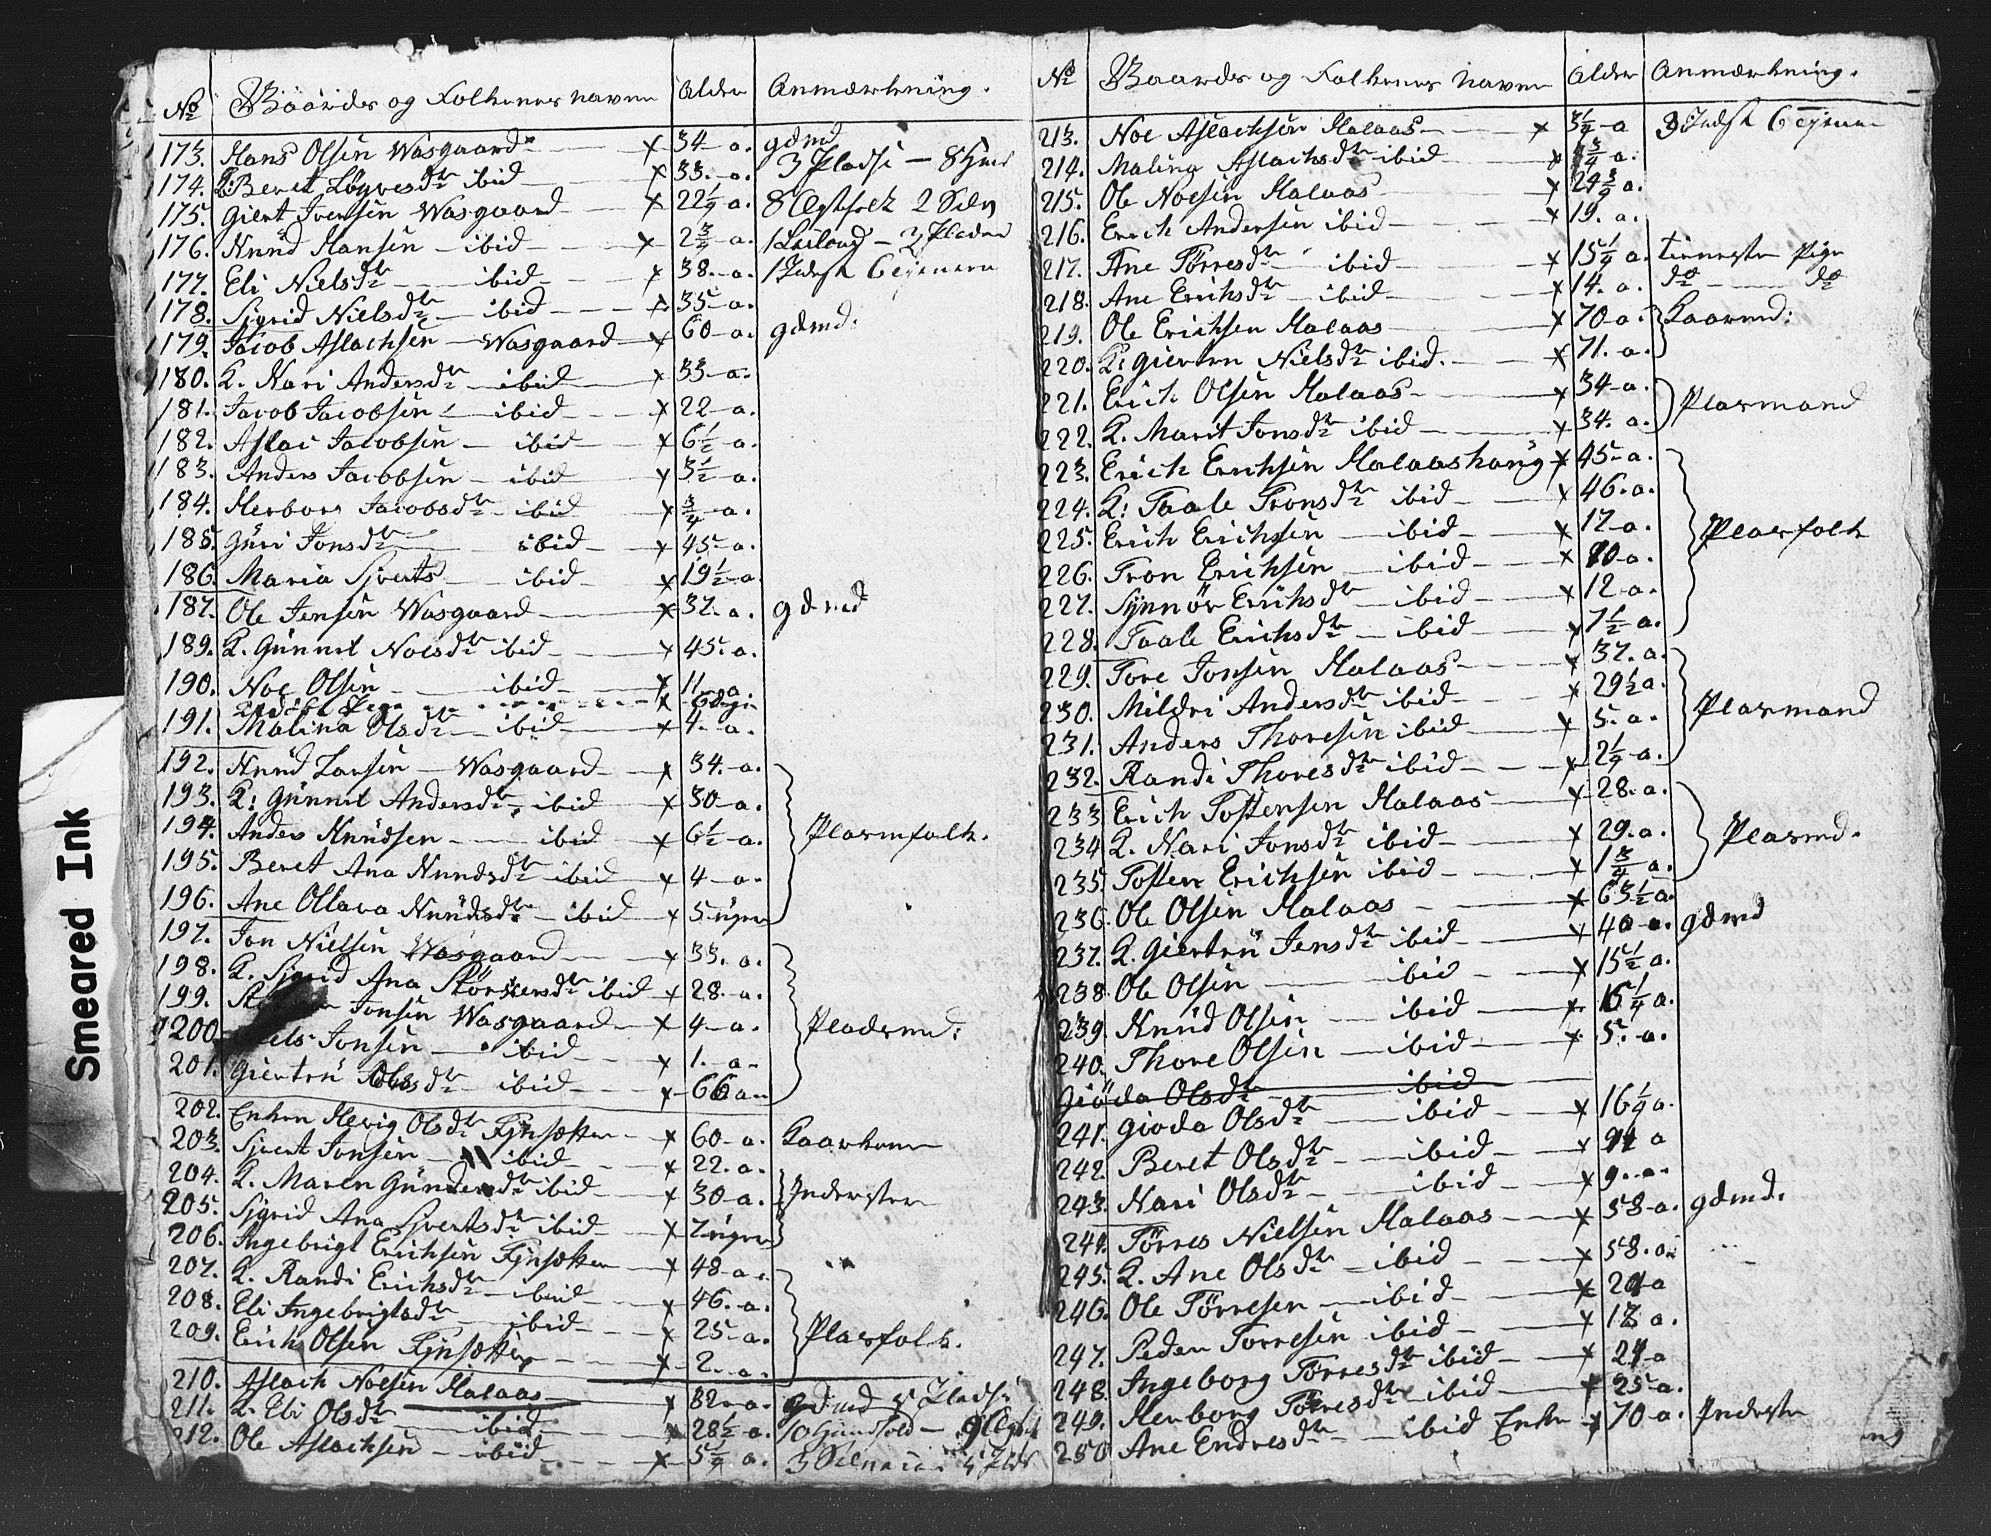 Smeared Ink
No Gaards og Folkenes navne Alder Anmærkning.
173. Hans Olsen Wasgaard x 34 a. gdmd
174. K: Beret ibid x 33. a. 3 Pladse
175. Giert Iversen Wasgaard x 22 1/4 a. 8
176. Knud Hansen ibid x 2 3/4 a.
177. Eli Nielsdtr ibid x 38. a.
178. Sigrid Nielsdtr ibid x 35 a.
179. Jacob Aslachsen Wasgaard x 60 a. gdmd.
180. K. Kari Andersdtr ibid x 33 a.
181. Jacob Jacobsen ibid x 22 a.
182. Aslac Jacobsen ibid x 6 1/2 a.
183. Anders Jacobsen ibid x 3 1/2 a.
184. Herbor Jacobsdtr ibid x 3/4 a.
185. Guri Jonsdtr ibid x 45 a.
186. Maria Siverts ibid x 19 1/2 a.
187. Ole Jensen Wasgaard x 37. a. gdmd
189. K. Gunnil Noesdtr ibid x 45. a.
190. Noe Olsen ibid x 11 a.
191. Malina Olsdtr ibid x 4. a.
192. Knud Larsen Wasgaard x 34. a.
193. K: Gunnil Andersdtr ibid x 30 a.
194. Anders Knudsen ibid x 6 1/2 a. Plasmfolk.
195. Beret Ana Knudsdtr ibid x 4 a.
196. Ane Ollava Knudsdtr ibid x 5 uger
197. Jon Nielsen Wasgaard x 33. a.
198. K. Sigrid Ana ibid x 28. a.
199. Jonsen Wasgaard x 4 a. Pladsmd:
200 Niels Jonsen ibid x 1. a
201. Giertru Olsdtr ibid x 66 a
202. Enken Hevig Olsdtr x 60 a. Kaarkone
203. Sivert Jonsen ibid x 22. a.
204. K. Maren ibid x 30 a. Inderster
205. Sigrid Ana Sivertsdtr ibid x 7 uger
206. Ingebrigt Erichsen x 48 a.
207. K. Randi Erichsdtr ibid x 46. a.
208. Eli Ingebrigtsdtr ibid x 25 a. Plasfolk.
209. Erich Olsen x 2. a.
210. Aslach Noesen Halaas x 32 a. gdmd Pladse
211. K. Eli Olsdtr ibid x 28 1/2 a.
212. Ole Aslachsen ibid x 5 1/4 a. 3
No Gaards og Folkenes navne Alder Anmærkning.
213. Noe Aslachsen Halaas x 3 1/4 a
214. Maling Aslachsdtr ibid x 3/4 a.
215. Ole Noesen Halaas x 24 3/4 a.
216. Erich Andersen ibid x 19. a.
217. Ane Törresdtr ibid x 15 1/4 a. tieneste Pige
218. Ane Erichsdtr ibid x 14. a. do do
219. Ole Erichsen Halaas x 70 a. Kaarmd:
220. K: Giertru Nielsdtr ibid. x 71. a.
221. Erich Olsen Halaas x 34 a. Plasmand
222. K. Marit Jonsdtr ibid x 34. a.
223. Erich Erichsen Halaashaug x 45 a.
224. K: Taale Tronsdtr ibid x 46. a.
225. Erich Erichsen ibid x 17 a. Plasfolk
226. Tron Erichsen ibid x 10 a.
227. Synnöv Erichsdtr ibid x 12 a.
228. Taale Erichsdtr ibid x 7 1/2 a.
229. Tore Jonsen Halaas x 37. a.
230. Mildri Andersdtr ibid x 29 1/2 a. Plasmand
231. Anders Thoresen ibid x 5. a.
232. Randi Thoresdtr ibid x 2 1/4 a.
233 Erich Tostensen Halaas x 28. a.
234 K. Kari Jonsdtr ibid x 29. a. Plasmd.
235. Tosten Erichsen ibid x 1 3/4 a.
236. Ole Olsen Halaas x 63 1/2 a.
237. K. Giertru Jensdtr ibid x 40 a. gdmd
238 Ole Olsen ibid x 15 1/2 a.
239. Knud Olsen ibid x 6 1/4 a.
240. Thore Olsen ibid x 5. a.
Giöda Olsdtr ibid
241. Gioda Olsdtr ibid x 16 1/4 a.
242. Beret Olsdtr ibid x a
243. Kari Olsdtr ibid x 9. a.
244. Törres Nielsen Halaas x 58 a. gdmd.
245. K. Ane Olsdtr ibid x 58. a
246. Ole Törresen ibid x a
247. Peder Torresen ibid x 18 a.
248. Ingeborg Törresdtr ibid x a
249. Herborg Törresdtr ibid x 25 a.
250 Ane Endresdtr ibid Enke x 70 a. Inderste